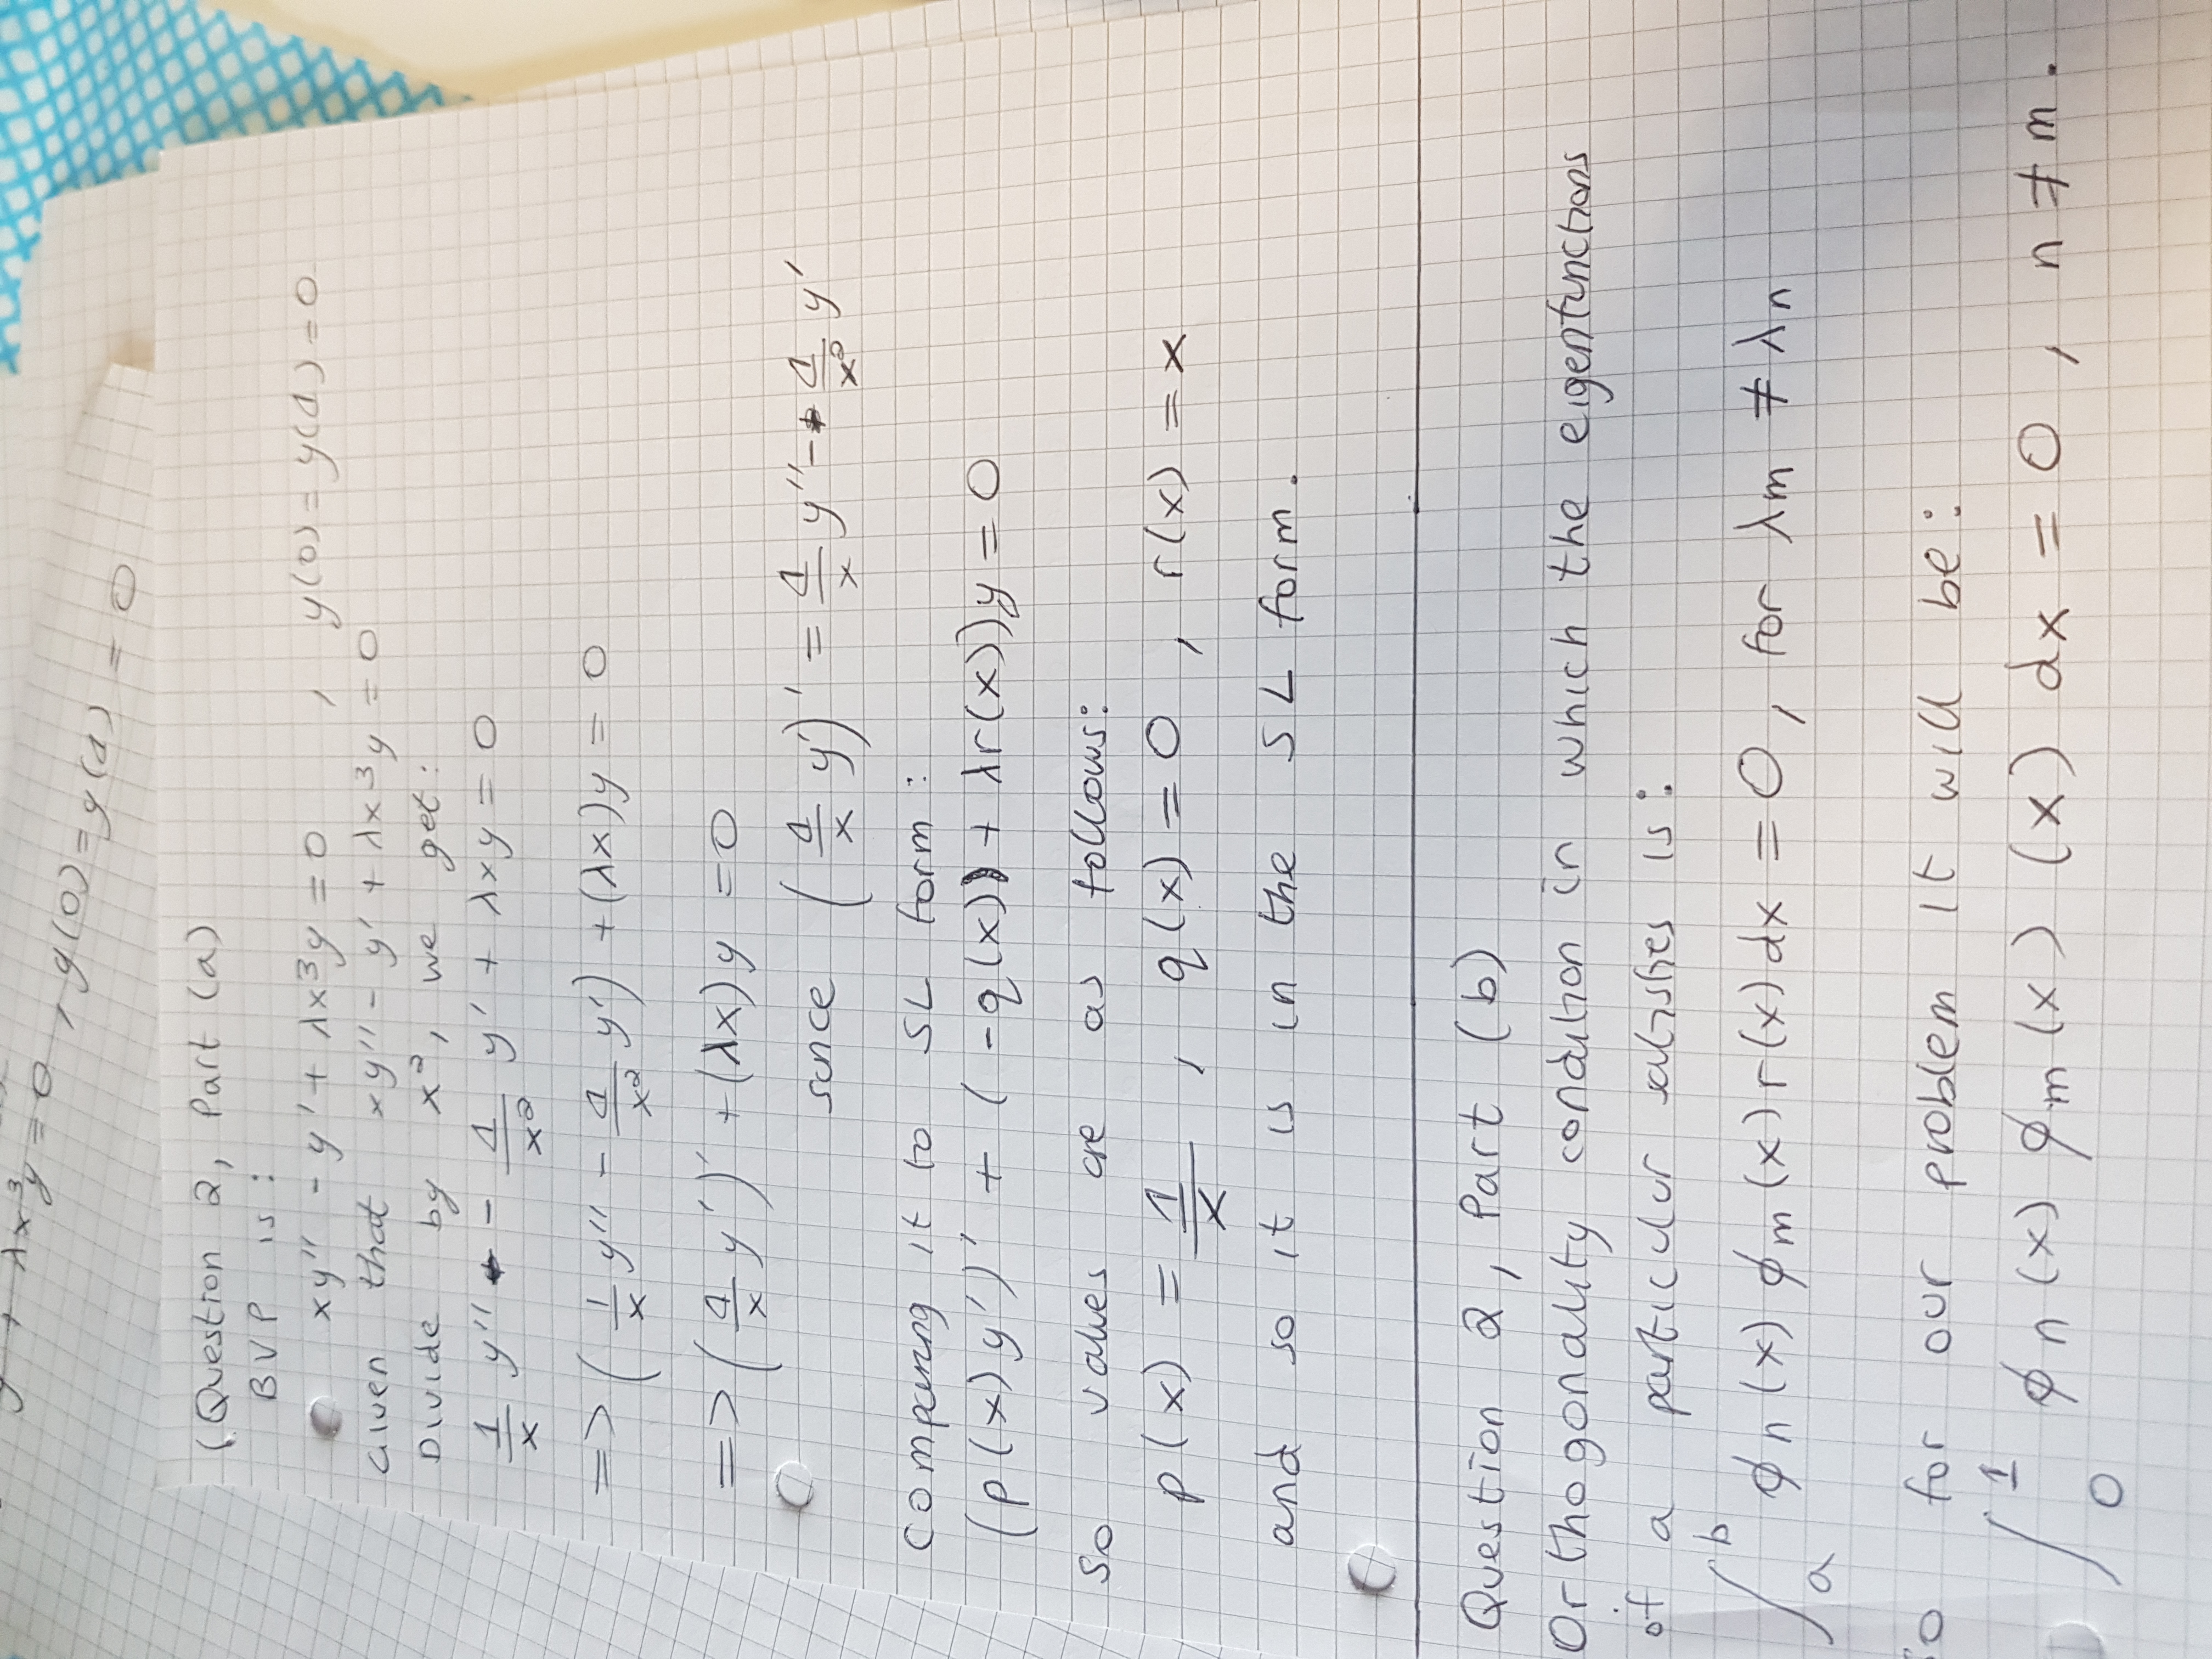 y + λx³y = 0 , y(0) = y(1) = 0
(Question 2, Part (a)
BVP is :
xy'' - y' + λx³y = 0 , y(0) = y(1) = 0
Given that xy'' - y' + λx³y = 0
Divide by x², we get:
1/x y'' - 1/x² y' + λxy = 0
=> ( 1/x y'' - 1/x² y') + (λx)y = 0
=> ( 1/x y' )' + (λx)y = 0
since ( 1/x y')' = 1/x y'' - 1/x² y'
Comparing it to SL form :
(p(x)y')' + ( -q(x) + λr(x))y = 0
So values are as follows:
p(x) = 1/x , q(x) = 0 , r(x) = x
and so it is in the SL form.
Question 2, Part (b)
Orthogonality condition in which the eigenfunctions
of a particular satisfies is :
∫_a^b ϕn(x) ϕm(x) r(x) dx = 0, for λm ≠ λn
So for our problem it will be :
∫_0^1 ϕn(x) ϕm(x) (x) dx = 0 , n ≠ m.